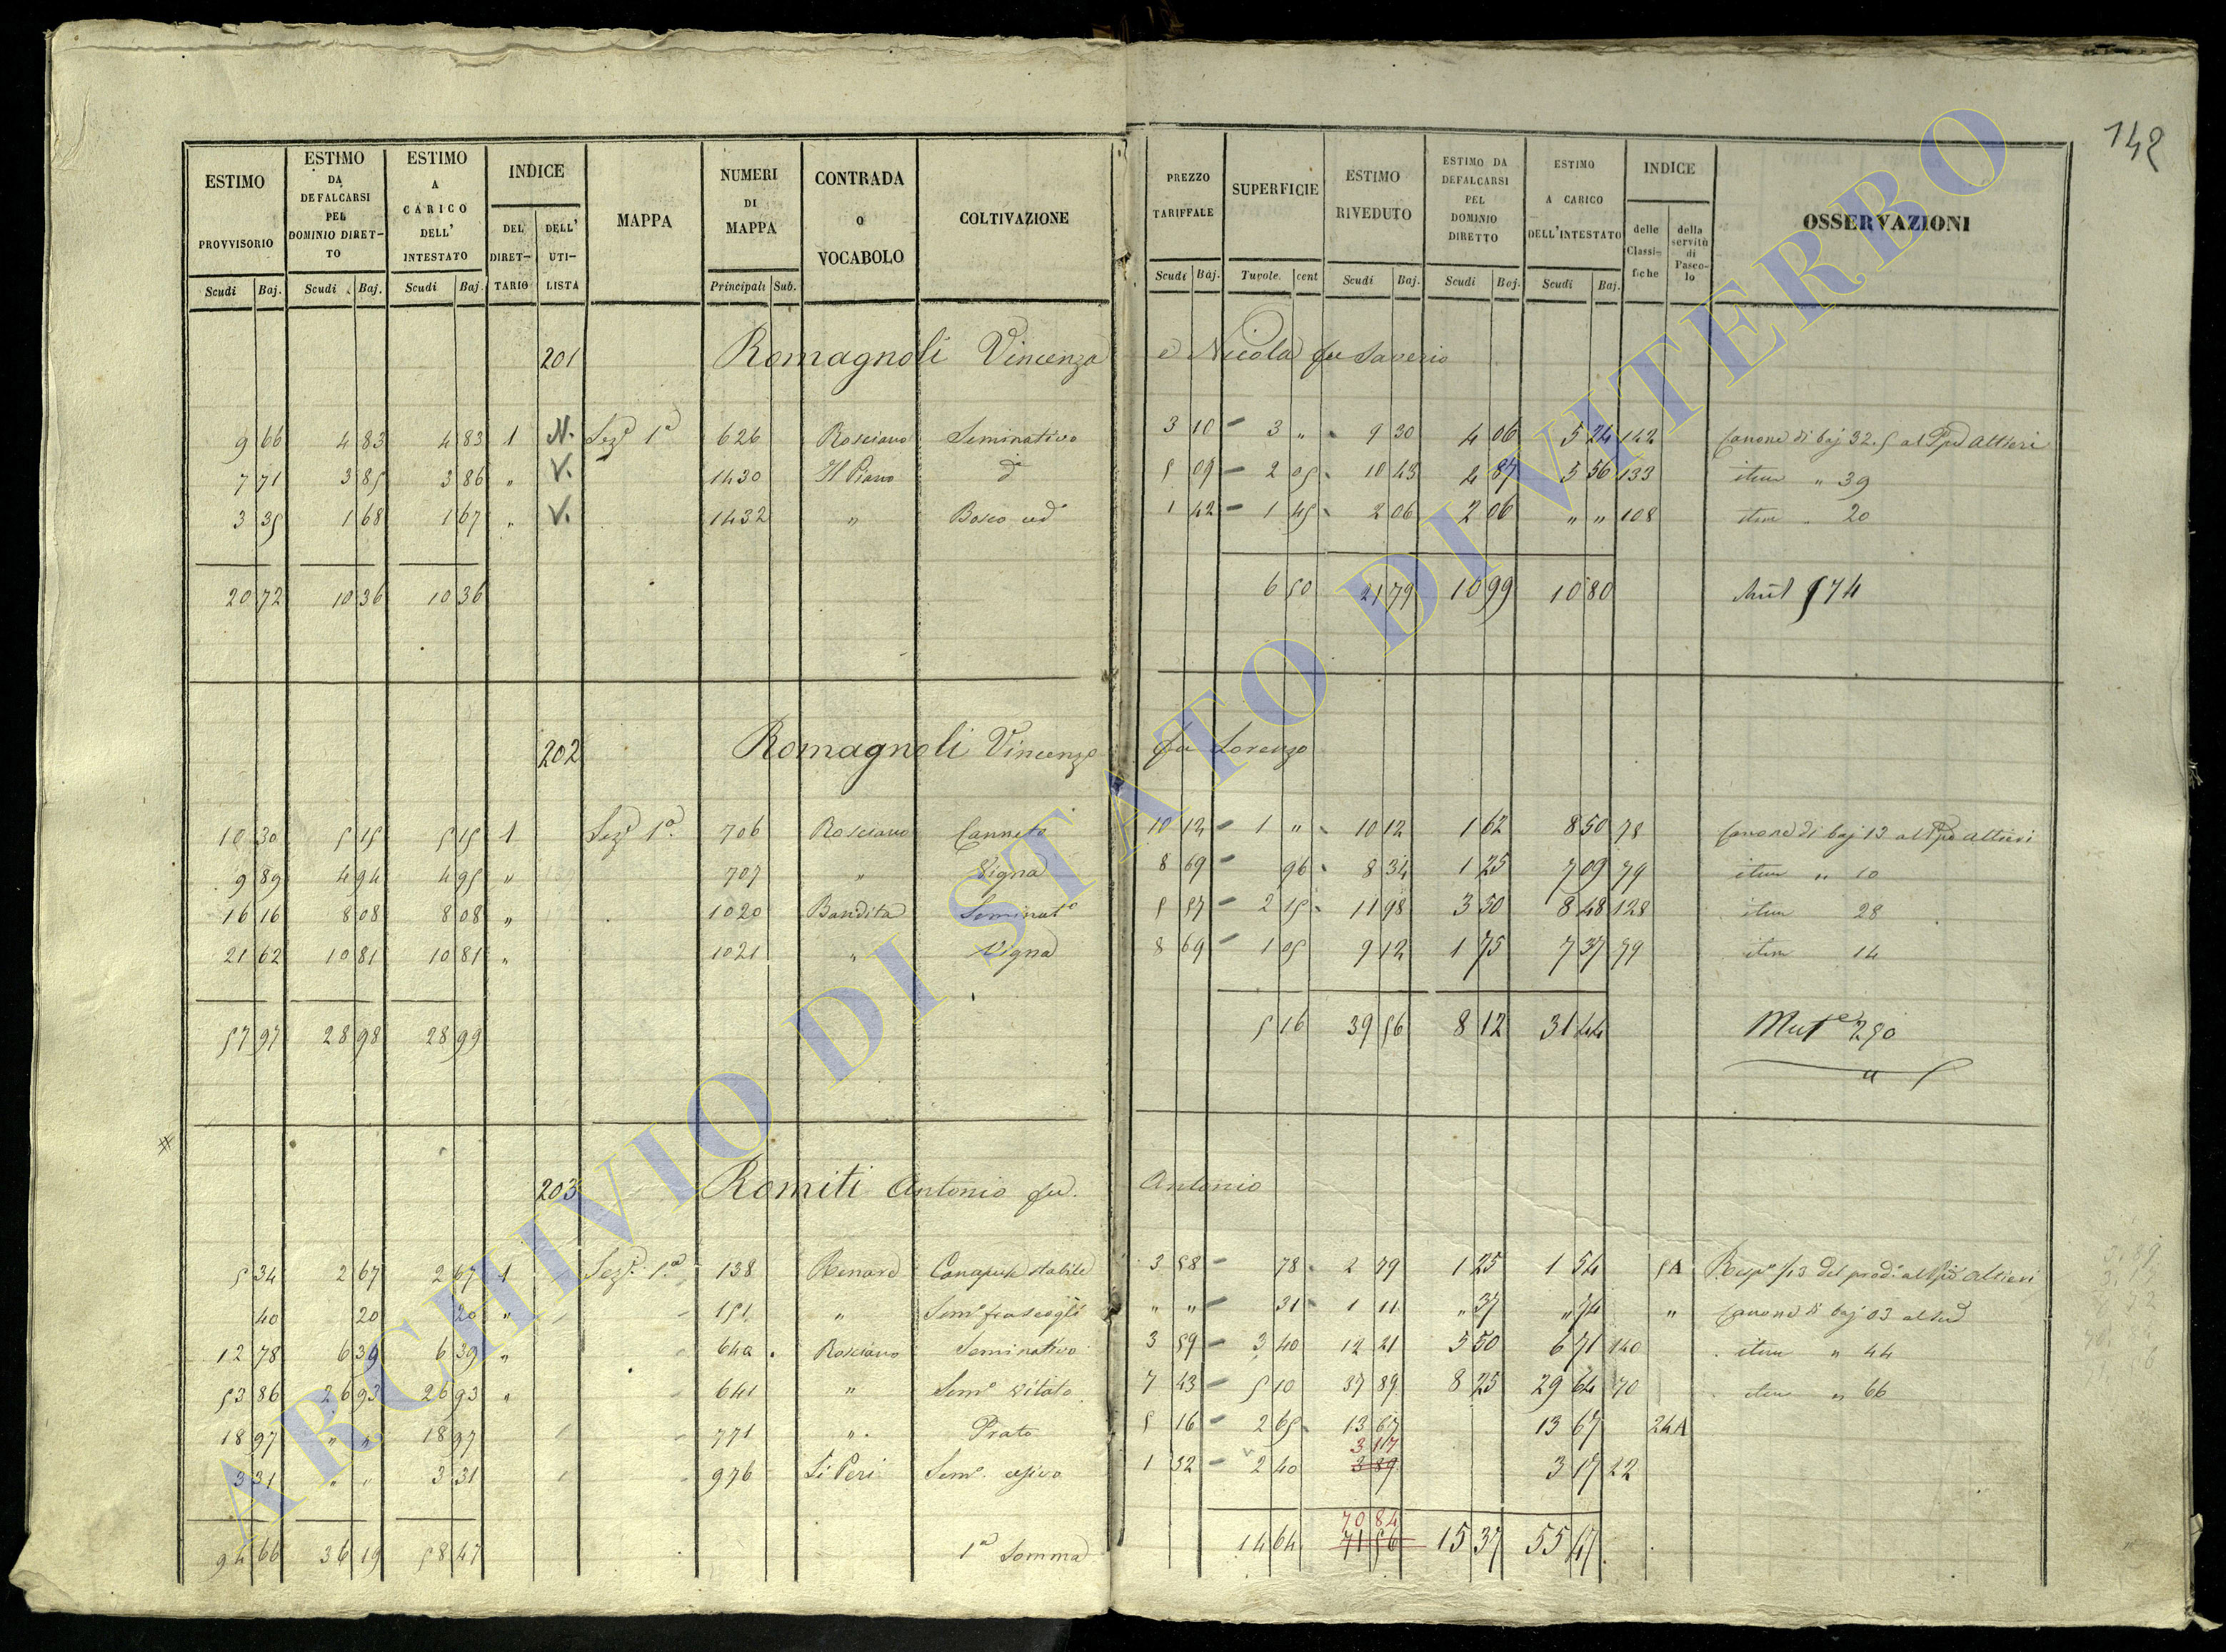 142
ESTIMO PROVVISORIO Scudi Baj. | ESTIMO DA DEFALCARSI PEL DOMINIO DIRETTO Scudi Baj. | ESTIMO A CARICO DELL' INTESTATO Scudi Baj. | INDICE DEL DIRETTARIO DELL' UTILISTA | MAPPA | NUMERI DI MAPPA Principali Sub. | CONTRADA o VOCABOLO | COLTIVAZIONE | PREZZO TARIFFALE Scudi Baj. | SUPERFICIE Tavole. cent | ESTIMO RIVEDUTO Scudi Baj. | ESTIMO DA DEFALCARSI PEL DOMINIO DIRETTO Scudi Baj. | ESTIMO A CARICO DELL'INTESTATO Scudi Baj. | INDICE delle Classifiche della servitù di Pascolo | OSSERVAZIONI
201 Romagnoli Vincenzo e Nicola fu Saverio
9 66 4 83 4 83 1 N. Sez.e 1a 626 Rosciano Seminativo 3 10 - 3 " 9 30 4 06 5 24 142 Canone di baj 32.5 al Ppe Altieri
7 71 3 85 3 86 " V. 1430 Il Piano do 5 09 - 2 05 10 43 4 87 5 56 133 item " 39
3 35 1 68 1 67 " V. 1432 " Bosco ced 1 42 - 1 45 2 06 2 06 " " 108 item " 20
20 72 10 36 10 36 6 50 21 79 10 99 10 80 574
202 Romagnoli Vincenzo fu Lorenzo
10 30 5 15 5 15 1 Sez.e 1a 706 Rosciano Canneto 10 12 - 1 " 10 12 1 62 8 50 78 Canone di baj 13 al Ppe Altieri
9 89 4 94 4 95 " 707 " Vigna 8 69 - 96 8 34 1 25 7 09 79 item " 10
16 16 8 08 8 08 " 1020 Bandita Seminato 5 57 - 2 15 11 98 3 50 8 48 128 item 28
21 62 10 81 10 81 " 1021 " Vigna 8 69 - 1 05 9 12 1 75 7 37 79 item 14
57 97 28 98 28 99 5 16 39 56 8 12 31 44 Mute 250
203 Romiti Antonio fu Antonio
5 34 2 67 2 67 1 Sez.e 1a 138 Renare Canapule stabile 3 58 - 78 2 79 1 25 1 54 5A Rispe 1/3 del prodo al Ppe Altieri
40 20 20 " 151 " Semo 31 1 11 " 37 " 74 " Canone di baj 03 al sud
12 78 6 39 6 39 " 640 Rosciano Seminativo 3 59 - 3 40 12 21 5 50 6 71 140 item " 44
53 86 26 93 26 93 " 641 " Semo vitato 7 43 - 5 10 37 89 8 25 29 64 70 item " 66
18 97 " " 18 97 771 " Prato 5 16 - 2 65 13 67 13 67 24A
3 17
3 31 " " 3 31 976 Li Peri Semo 1 32 - 2 40 3 89 3 17 22
70 84
94 66 36 19 58 47 1a Somma 14 64 71 56 15 37 55 47
ARCHIVIO DI STATO DI VITERBO